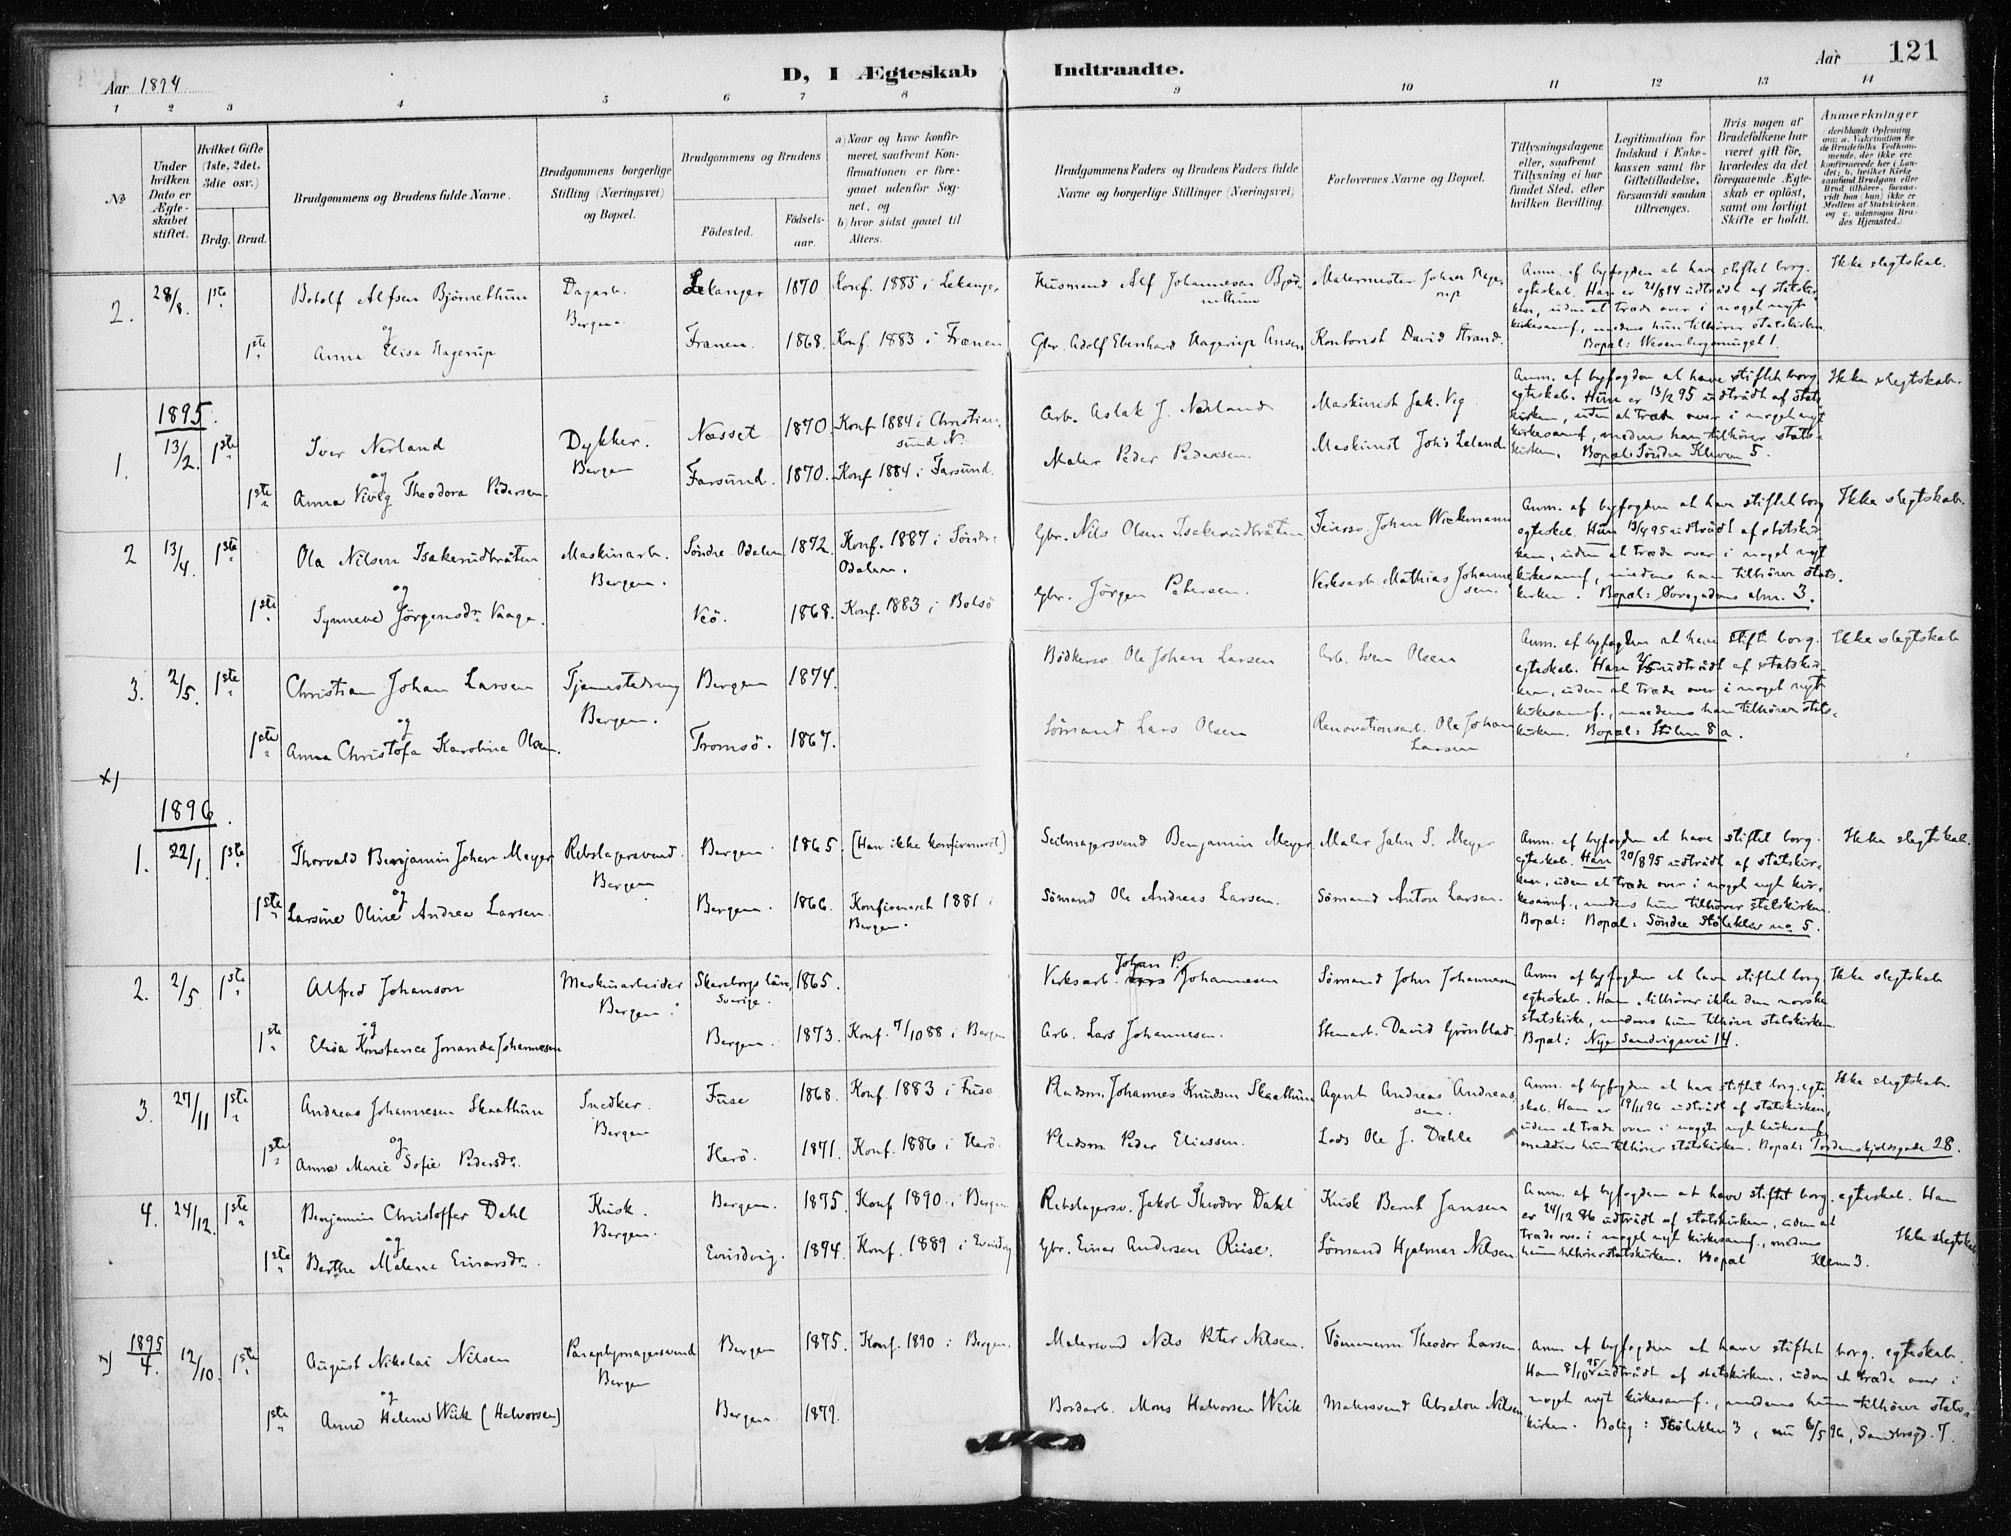 Aar 1894
D, I Ægteskab Indtraadte.
Aar 121
1 2 3 4 5 6 7 8 9 10 11 12 13 14
No
Under hvilken Dato er Ægteskabet stiftet.
Hvilket Gifte (1ste, 2det, 3die osv.)
Brdg. Brud.
Brudgommens og Brudens fulde Navne.
Brudgommens borgerlige Stilling (Næringsvei) og Bopæl.
Brudgommens og Brudens
Fødested.
Fødselsaar.
a) Naar og hvor konfirmeret, saafremt Konfirmationen er foregaaet udenfor Sognet, og
b) hvor sidst gaaet til Alters.
Brudgommens Faders og Brudens Faders fulde Navne og borgerlige Stillinger (Næringsvei)
Forlovernes Navne og Bopæl.
Tillysningsdagene eller, saafremt Tillysning ei har fundet Sted, efter hvilken Bevilling.
Legitimation for Indskud i Enkekassen samt for Giftetilladelse, forsaavidt saadan tiltrænges.
Hvis nogen af Brudefolkene har været gift før, hvorledes da det foregaaende Ægteskab er opløst, samt om lovligt Skifte er holdt.
Anmerkninger (deriblandt Oplysning om: a. Vakcination for de Brudefolks Vedkommende, der ikke ere konfirmerede her i Landet; b. hvilket Kirkesamfund Brudgom eller Brud tilhører, forsaavidt han (hun) ikke er Medlem af Statskirken, og c. udensogns Brudes Hjemsted.)
2. 28/8. 1ste Botolf Alfsen Bjørnethun Dagarb. Bergen. Lekanger 1870 Konf. 1885 i Lekanger
Husmand Alf Johannesen Bjørnethun Malermester Johan Hagerup
Anm. af byfogden at have stiftet borg. egteskab. Han er 21/894 udtrådt af statskirken, uden at træde over i noget nyt kirkesamf., medens hun tilhører statskirken. Ikke slegtskab.
og
1ste Anna Elisa Hagerup Frænen. 1868. Konf. 1883 i Frænen
Gbr. Adolf Eberhard Hagerup Ansen Kontorist David Strand.
1895.
1. 13/2. 1ste Iver Nerland Dykker. Bergen Næsset 1870. Konf. 1884 i Christiansund N.
Arb. Aslak J. Nerland Maskinist Jak. Vig
Anm. af byfogden at have stiftet borg. egteskab. Hun er 13/2 95 udtrådt af statskirken, uden at træde over i noget nyt kirkesamf., medens han tilhører statskirken. Bopæl: Søndre Kleven 5. Ikke slegtskab.
og
1ste Anna Theodora Pedersen. Farsund. 1870. Konf 1884 i Farsund.
Maler Peder Pedersen. Maskinist Johs Leland
2 13/4. 1ste Ola Nilsen Isakerudbråten Maskinarb. Bergen. Søndre Odalen 1872. Konf. 1887 i Søndre Odalen.
Gbr. Nils Olsen Isakerudbråten Johan Wiekmann
Anm. af byfogden at have stiftet borg egteskab. Hun 13/4 95 udtrådt af statskirken, uden at træde over i noget nyt kirkesamf., medens han tilhører statskirken. Ikke slegtskab.
og
1ste Synneve Jørgensdr. Vaage. Veö. 1868. Konf. 1883 i Bolsö
Gbr. Jørgen Petersen. Verksarb. Mathias Johannesen.
3. 2/5. 1ste Christian Johan Larsen Tjenestedreng Bergen. Bergen 1874.
Bödkersv. Ole Johan Larsen Arb. Sven Olsen
Anm. af byfogden at have stiftet borg. egteskab. Han 2/5 udtrådt af statskirken, uden at træde over i noget nyt kirkesamf., medens hun tilhører statskirken. Bopæl: Stölen 8a. Ikke slegtskab
og
1ste Anna Christofa Karolina Olsen. Tromsö. 1867.
Sömand Lars Olsen Renovationsarb. Ole Johan Larsen
x)
1896.
1. 22/1. 1ste Thorvald Benjamin Johan Meyer Rebslagersvend. Bergen Bergen. 1865. (Han ikke konfirmeret)
Seilmagersvend Benjamin Meyer Maler Jahn S. Meyer
Anm. af byfogden at have stiftet borg. egteskab. Han 20/895 udtrådt af statskirken, uden at træde over i noget nyt kirkesamf., medens hun tilhører statskirken. Bopæl: Bopæl: Søndre Stöleklev no. 5. Ikke slegtskab.
og
1ste Larsine Oline Andrea Larsen. Bergen. 1866. Konfirmeret 1881 i Bergen.
Sömand Ole Andreas Larsen. Sömand Anton Larsen.
2. 2/5. 1ste Alfred Johanson Maskinarbeider Bergen. Skaraborgs län, Sverige. 1865.
Verksarb. Johan P. Johannesen Sömand John Johannesen
Anm af byfogden at have stiftet borg egteskab. Han tilhører ikke den norske statskirke, medens hun tilhører statskirken. Bopæl: Nye Sandvigsvei 14. Ikke slegtskab
og
1ste Elisa Konstance Jonanda Johannesen Bergen. 1873. Konf. 7/10 88 i Bergen
Arb. Lars Johannesen. Stenarb. David Grönblad
3. 27/11 1ste Andreas Johannesen Skaathun Snedker. Bergen Fuse 1868. Konf. 1883 i Fuse
Pladsm. Johannes Knudsen Skaathun Agent Andreas Andreassen.
Anm. af byfogden at have stiftet borg. egteskab. Han er 19/11 96 udtrådt af statskirken, uden at træde over i noget nyt kirkesamf. medens hun tilhører statskirken. Bopæl: Tordenskjoldsgade 28. Ikke slegtskab.
og
1ste Anna Marie Sofie Pedersdr. Herö. 1871. Konf. 1886 i Herö.
Pladsm. Peder Eliassen. Lods Ole J. Dahle
4. 24/12. 1ste Benjamin Christoffer Dahl Kusk. Bergen. Bergen. 1875. Konf 1890 i Bergen
Rebslagersv. Jakob Theodor Dahl Kusk Bernt Jansen
Anm. af byfogden at have stiftet borg. egteskab. Han er 24/12 86 udtrådt af statskirken, uden at træde over i noget nyt kirkesamf., medens hun tilhører statskirken. Bopæl Kleven 3. Ikke slegtskab
og
1ste Berthe Malene Einarsdr. Evindvig. 1874. Konf. 1889 i Evindvig
Gbr. Einar Andersen Riise. Sömand Hjalmar Nilsen
x) 1895/4. 12/10. 1ste August Nikolai Nilsen Paraplymagersvend Bergen Bergen 1875. Konf. 1890 i Bergen.
Malersvend Nils Peter Nilsen. Tömmerm. Theodor Larsen
Anm af byfogden at have stiftet borg. egteskab. Han 8/10 95 udtrådt af statskirken, uden at træde over i noget nyt kirkesamf., medens hun tilhører statskirken. Bolig: Stöleklev 3, nu 6/5 96, 
og
1ste Anna Helene Wiik (Halvorsen) Bergen. 1872.
Bordarb. Mons Halvorsen Wiik Malersvend Absalon Nilsen